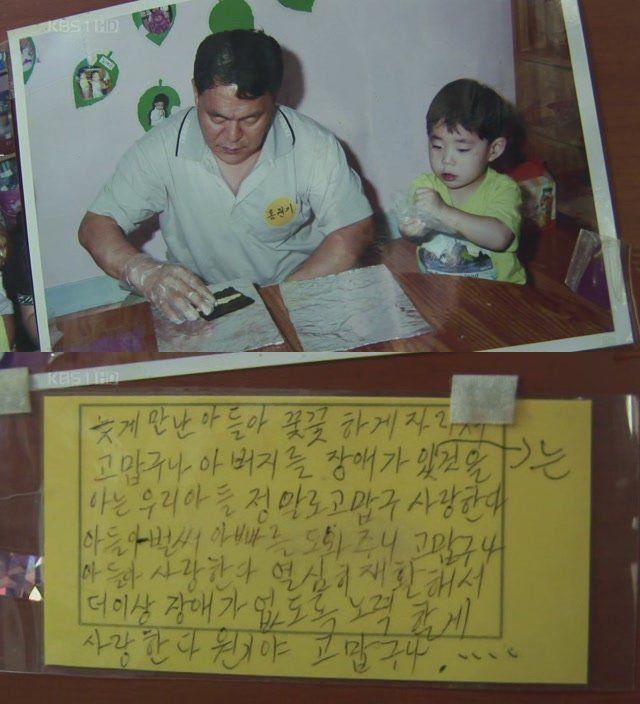 KBS1HD
홍권기
KBS1HD
늦게 만난 아들아 꽃꽃 하게 자라서
고맙구나 아버지를 장애가 있것을 는
아는 우리아들 정말로고맙구 사랑한다
아들아 벌써 아빠를 도와 주니 고맙구나
아들아 사랑한다 열심히 재활해서
더이상 장애가 없도록 노력 할게
사랑한다 원기야 고맙구나.....